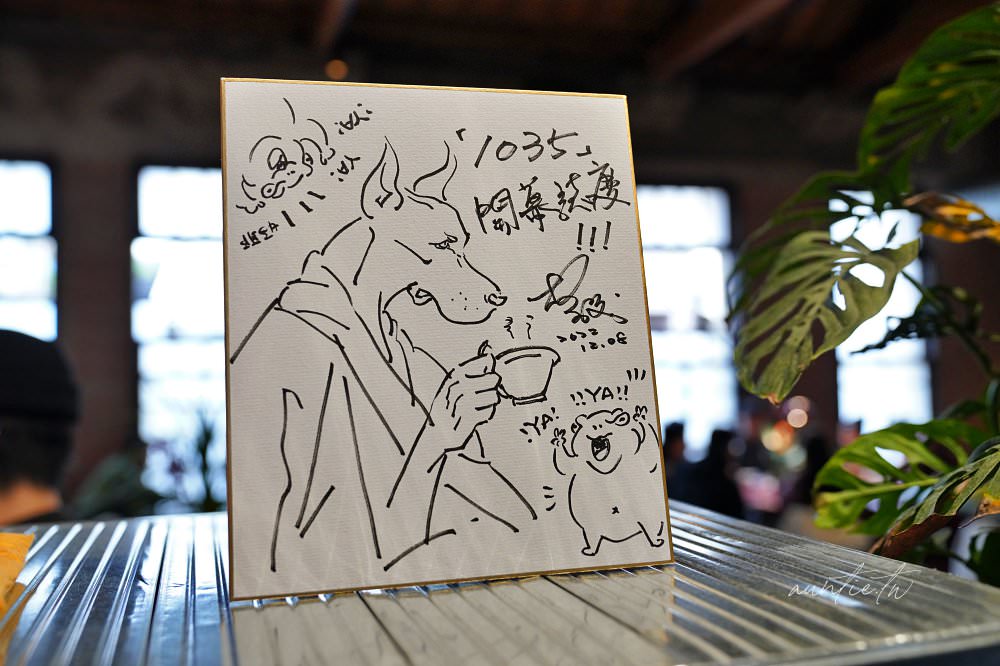 「1035」
開幕誌慶
!!!
2022
12.08
YA!
YA!
!!YA!!
YA!
auntie.tw